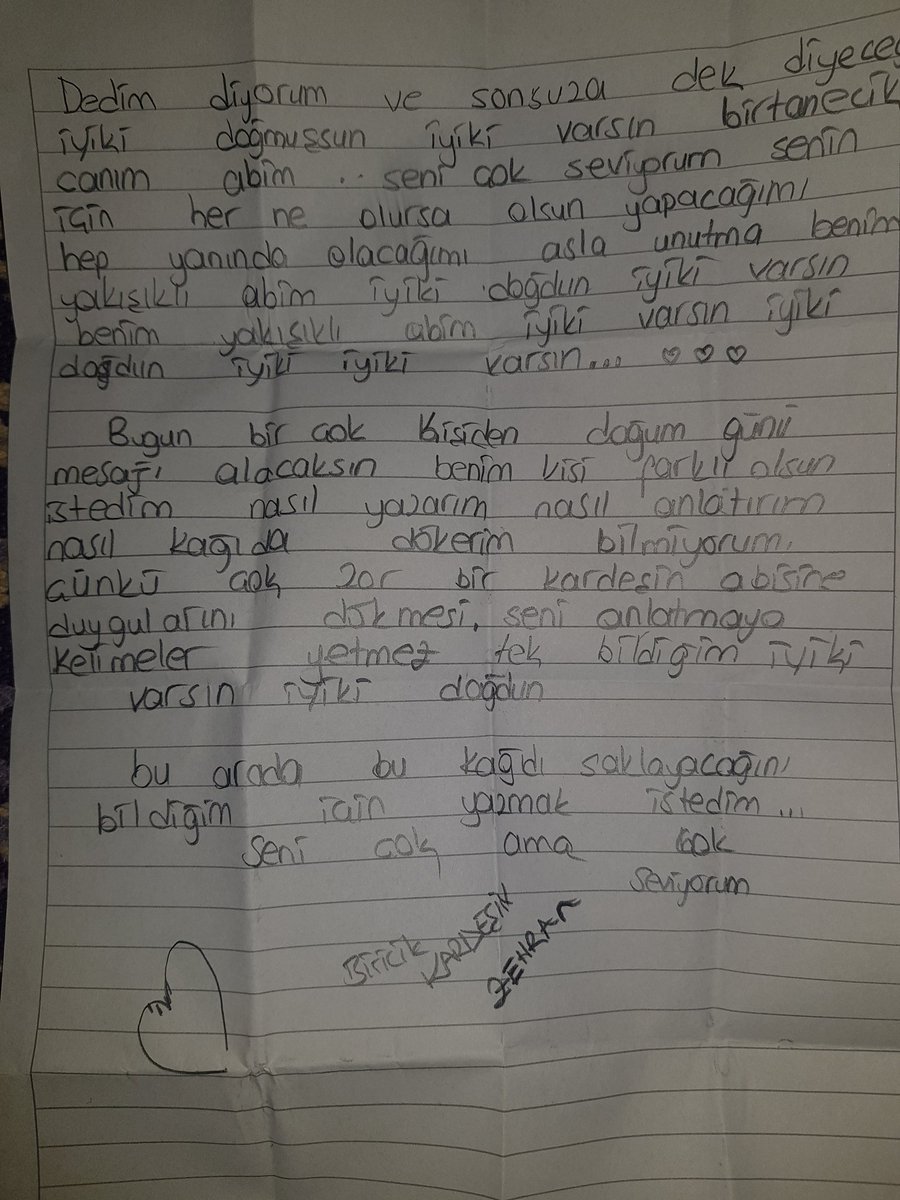 Dedim diyorum ve sonsuza dek diyeceğ
iyiki doğmuşsun iyiki varsın birtanecik
canım abim .. seni çok seviyorum senin
için her ne olursa olsun yapacağımı
hep yanında olacağımı asla unutma benim
yakışıklı abim iyiki doğdun iyiki varsın
benim yakışıklı abim iyiki varsın iyiki
doğdun iyiki iyiki varsın... ♡ ♡ ♡
Bugun bir çok kişiden doğum günü
mesajı alacaksın benim kisi farklı olsun
istedim nasıl yazarım nasıl anlatırım
nasıl kağıda dökerim bilmiyorum.
çünkü çok zor bir kardeşin abisine
duygularını dökmesi. seni anlatmaya
kelimeler yetmez tek bildiğim iyiki
varsın iyiki doğdun
bu arada bu kağıdı saklayacağını
bildiğim için yazmak istedim...
Seni çok ama çok
seviyorum
Biricik
KARDEŞİN
ZEHRAN